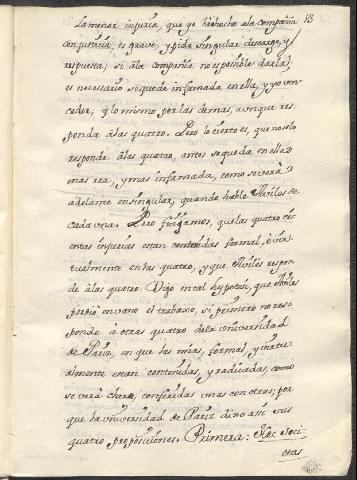 13
La menor injuria, que yo he hecho a la compañia
con justicia, es grave, y pide singular descargo, y
respuesta; si â la compañia no es posible darla,
es necesario se quede infamada en ella, y yo ven-
cedor; y lo mismo por las demas, aunque res-
ponda âlas quatro. Pero lo cierto es, que no solo
responde âlas quatro, antes se queda en ellas
mas rea, y mas infamada, como se verà
adelante en singular, quando hable Aviles de
cada una. Pero finjamos, que las quatro ci-
entas injurias estan contenidas formal, ô vir-
tualmente en las quatro, y que Avilès respon-
de âlas quatro. Digo en tal hypotesi, que Aviles
perdiò en vano el trabaxo, si primero no res-
ponde â otras quatro dela Universidad
de Pariz, en que las mias, formal, y virtu-
almente estan contenidas, y radicadas, como
se verà conferidas unas con otras; por
que la universidad de Pariz dixo asi sus
quatro proposiciones. Primera: Hæc Soci-
etas